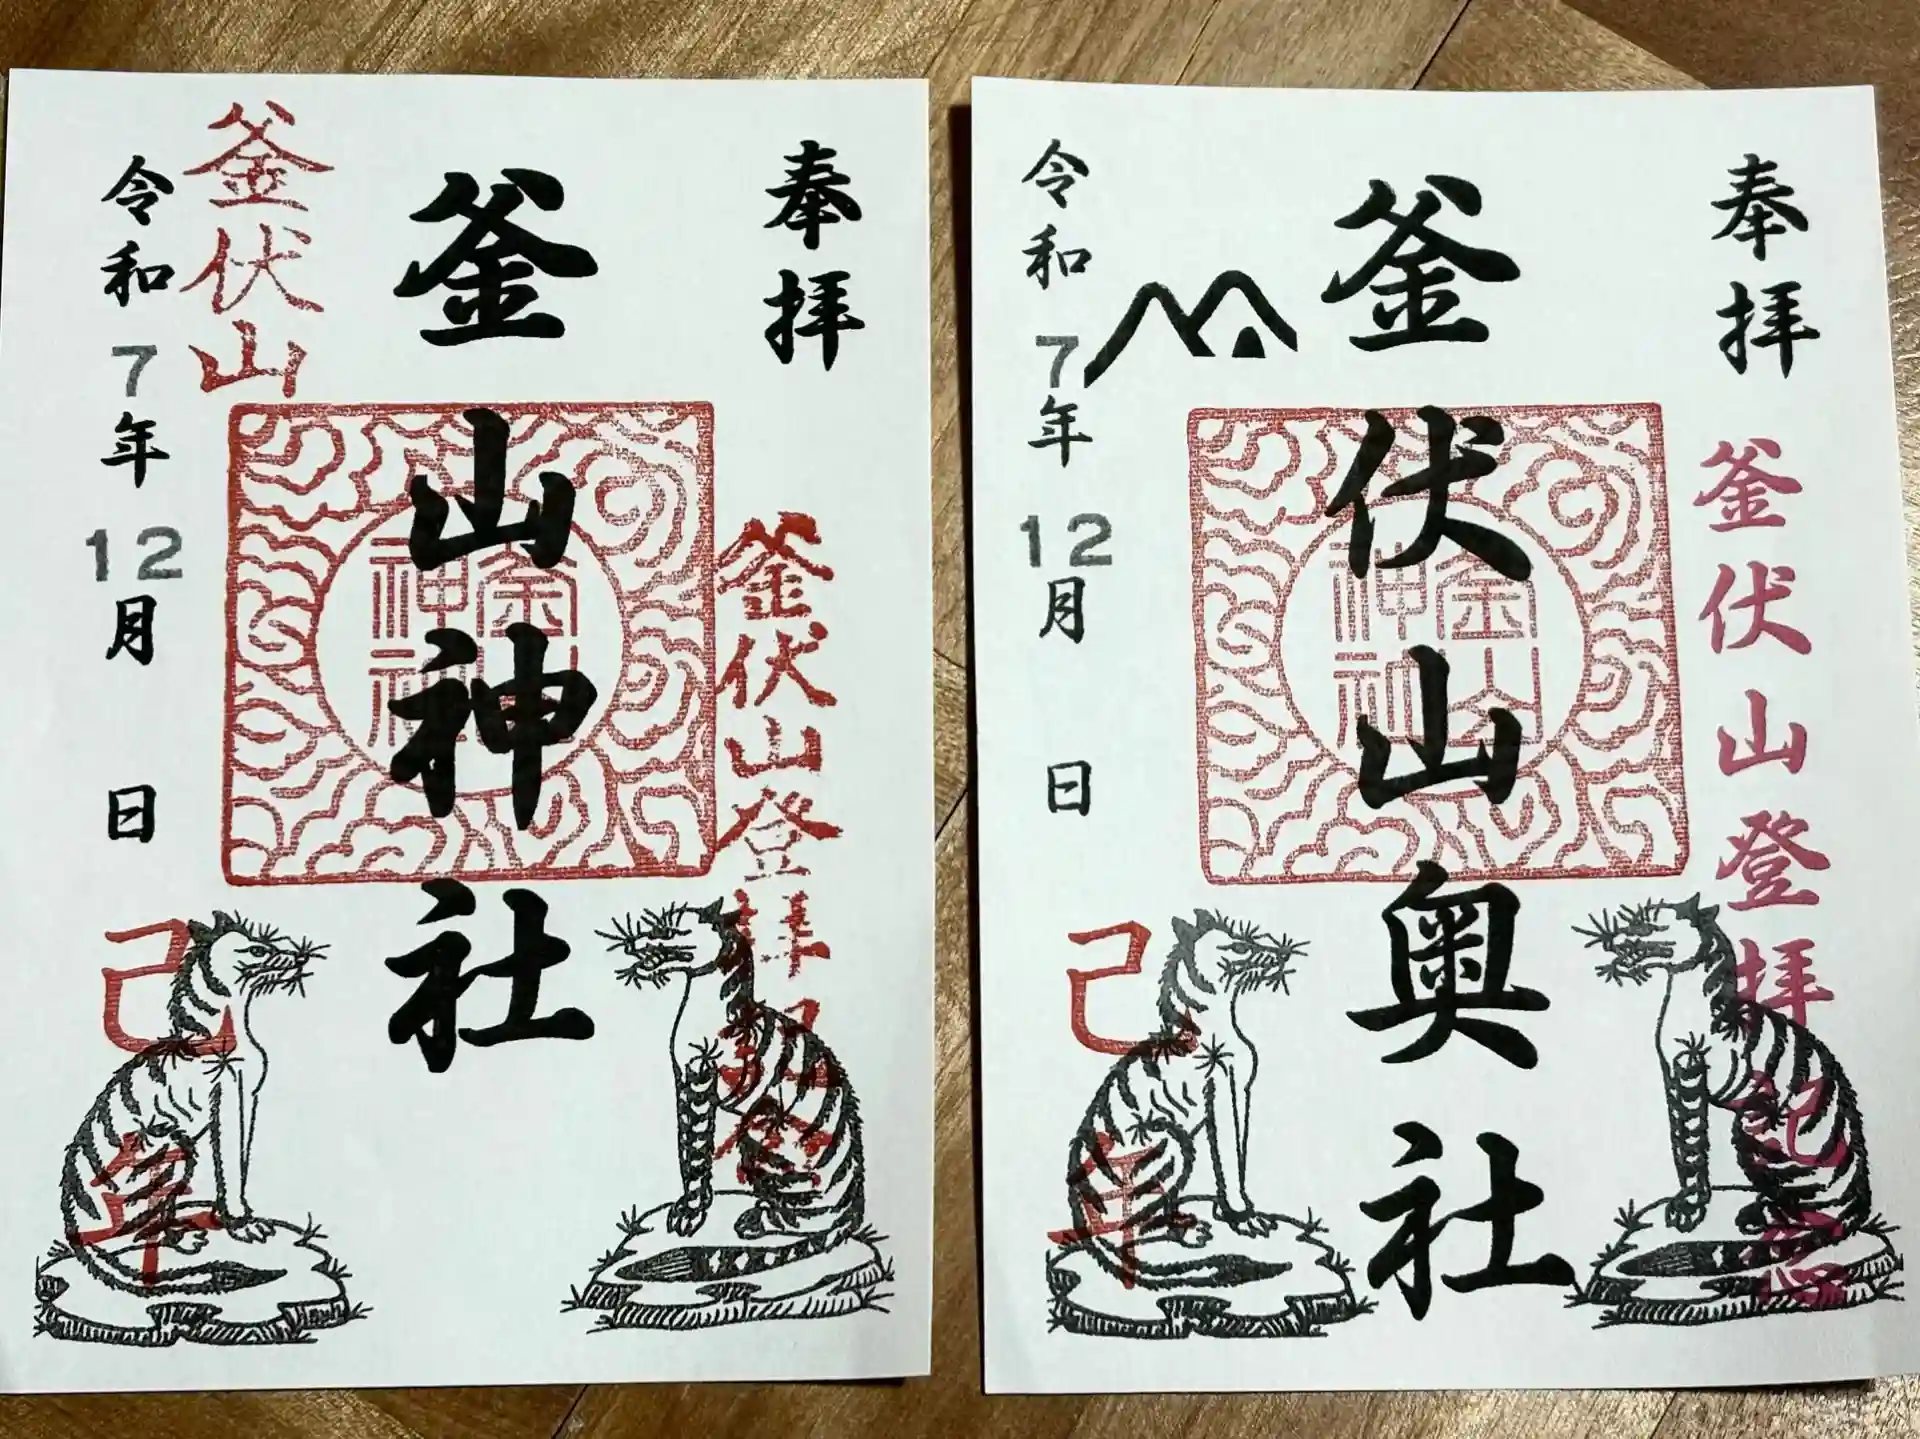 奉拝
釜山神社
釜伏山
釜伏山登拝記念
令和7年12月 日
己年
釜山
神社
奉拝
釜伏山奥社
釜伏山登拝記念
令和7年12月 日
己年
釜山
神社